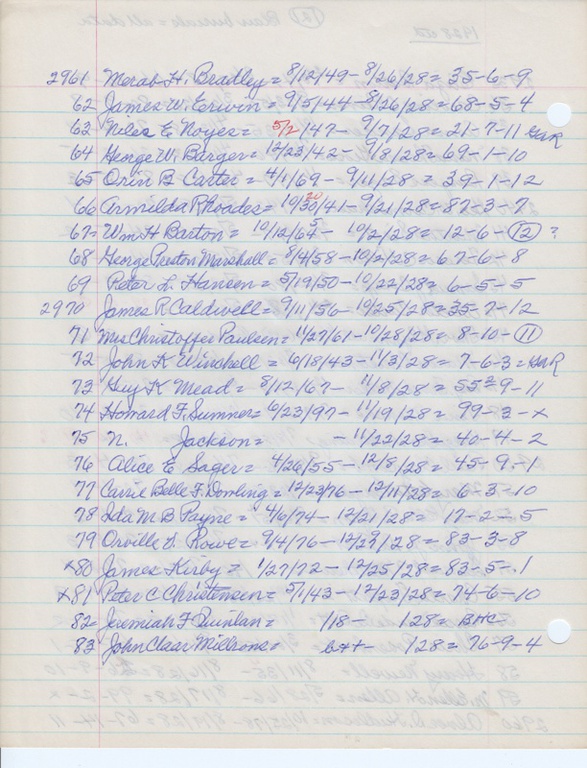 2961 Merab H. Bradley = 8/12/49 - 8/26/28 = 35-6-9
62 James W. Erwin = 9/5/44 - 8/26/28 = 68-5-4
63 Niles E Noyes = 5/2/47 - 9/7/28 = 21-7-11 GAR
64 George W. Barger = 12/23/42 - 9/8/28 = 69-1-10
65 Orin B Carter = 4/1/69 - 9/11/28 = 39-1-12
66 Armilda Rhoades = 10/20/41 - 9/21/28 = 87-3-7
67 = Wm H Barton = 10/12/65 - 10/2/28 = 12-6-12 ?
68 George Preston Marshall = 8/4/58 - 10/2/28 = 67-6-8
69 Peter L. Hansen = 5/19/50 - 10/22/28 = 6-5-5
2970 James R Caldwell = 9/11/56 - 10/25/28 = 35-7-12
71 Mrs Christoffer Paulsen = 11/27/61 - 10/28/28 = 8-10-11
72 John K Winshell = 6/18/43 - 11/3/28 = 7-6-3 = GAR
73 Guy K Mead = 8/12/67 - 11/8/28 = 55-9-11
74 Howard F. Sumner = 6/23/97 - 11/19/28 = 99-3-x
75 N. Jackson = - 11/22/28 = 40-4-2
76 Alice E Sager = 4/26/55 - 12/8/28 = 45-9-.1
77 Carrie Belle F. Dowling = 12/23/76 - 12/11/28 = 6-3-10
78 Ida M B Payne = 4/6/74 - 12/21/28 = 17-2-5
79 Orville S. Rowe = 9/4/76 - 12/29/28 = 83-3-8
x80 James Kirby = 1/27/72 - 12/25/28 = 83-5-.1
x81 Peter C Christensen = 5/1/43 - 12/23/28 = 74-6-10
82 = Jeremiah F Quinlan = /18- 128 = BHC
83 John Claar Millrons = - 128 = 76-9-4